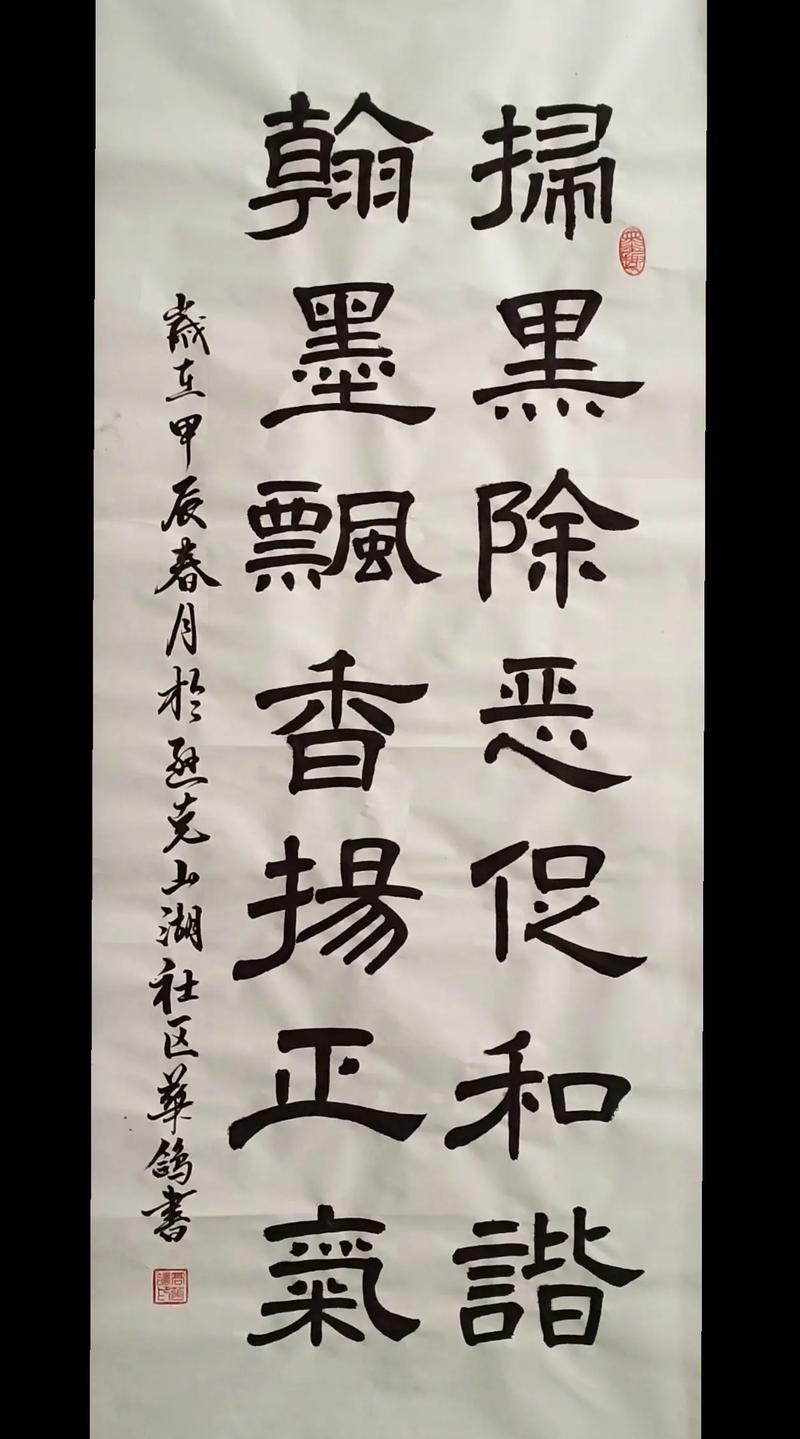 掃黑除恶促和諧
翰墨飄香揚正氣
歲在甲辰春月於逊克山湖社区華鴿書